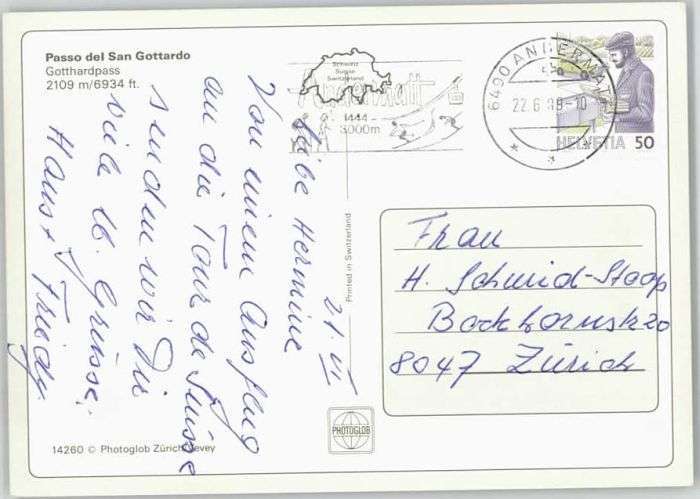 Passo del San Gottardo
Gotthardpass
2109 m/6934 ft.
Schweiz
Suisse
Switzerland
Andermatt
1444-
3000m
6490 ANDERMATT
22.6.88-10
HELVETIA 50
21. VI
Liebe Hermine
Von einem Ausflug
an die Tour de Suisse
senden wir Dir
viele lb. Grüsse.
Hans + Friedy
Printed in Switzerland
Frau
H. Schmid-Staap
Bockhornstr 20
8047 Zürich
PHOTOGLOB
14260 © Photoglob Zürich/Vevey